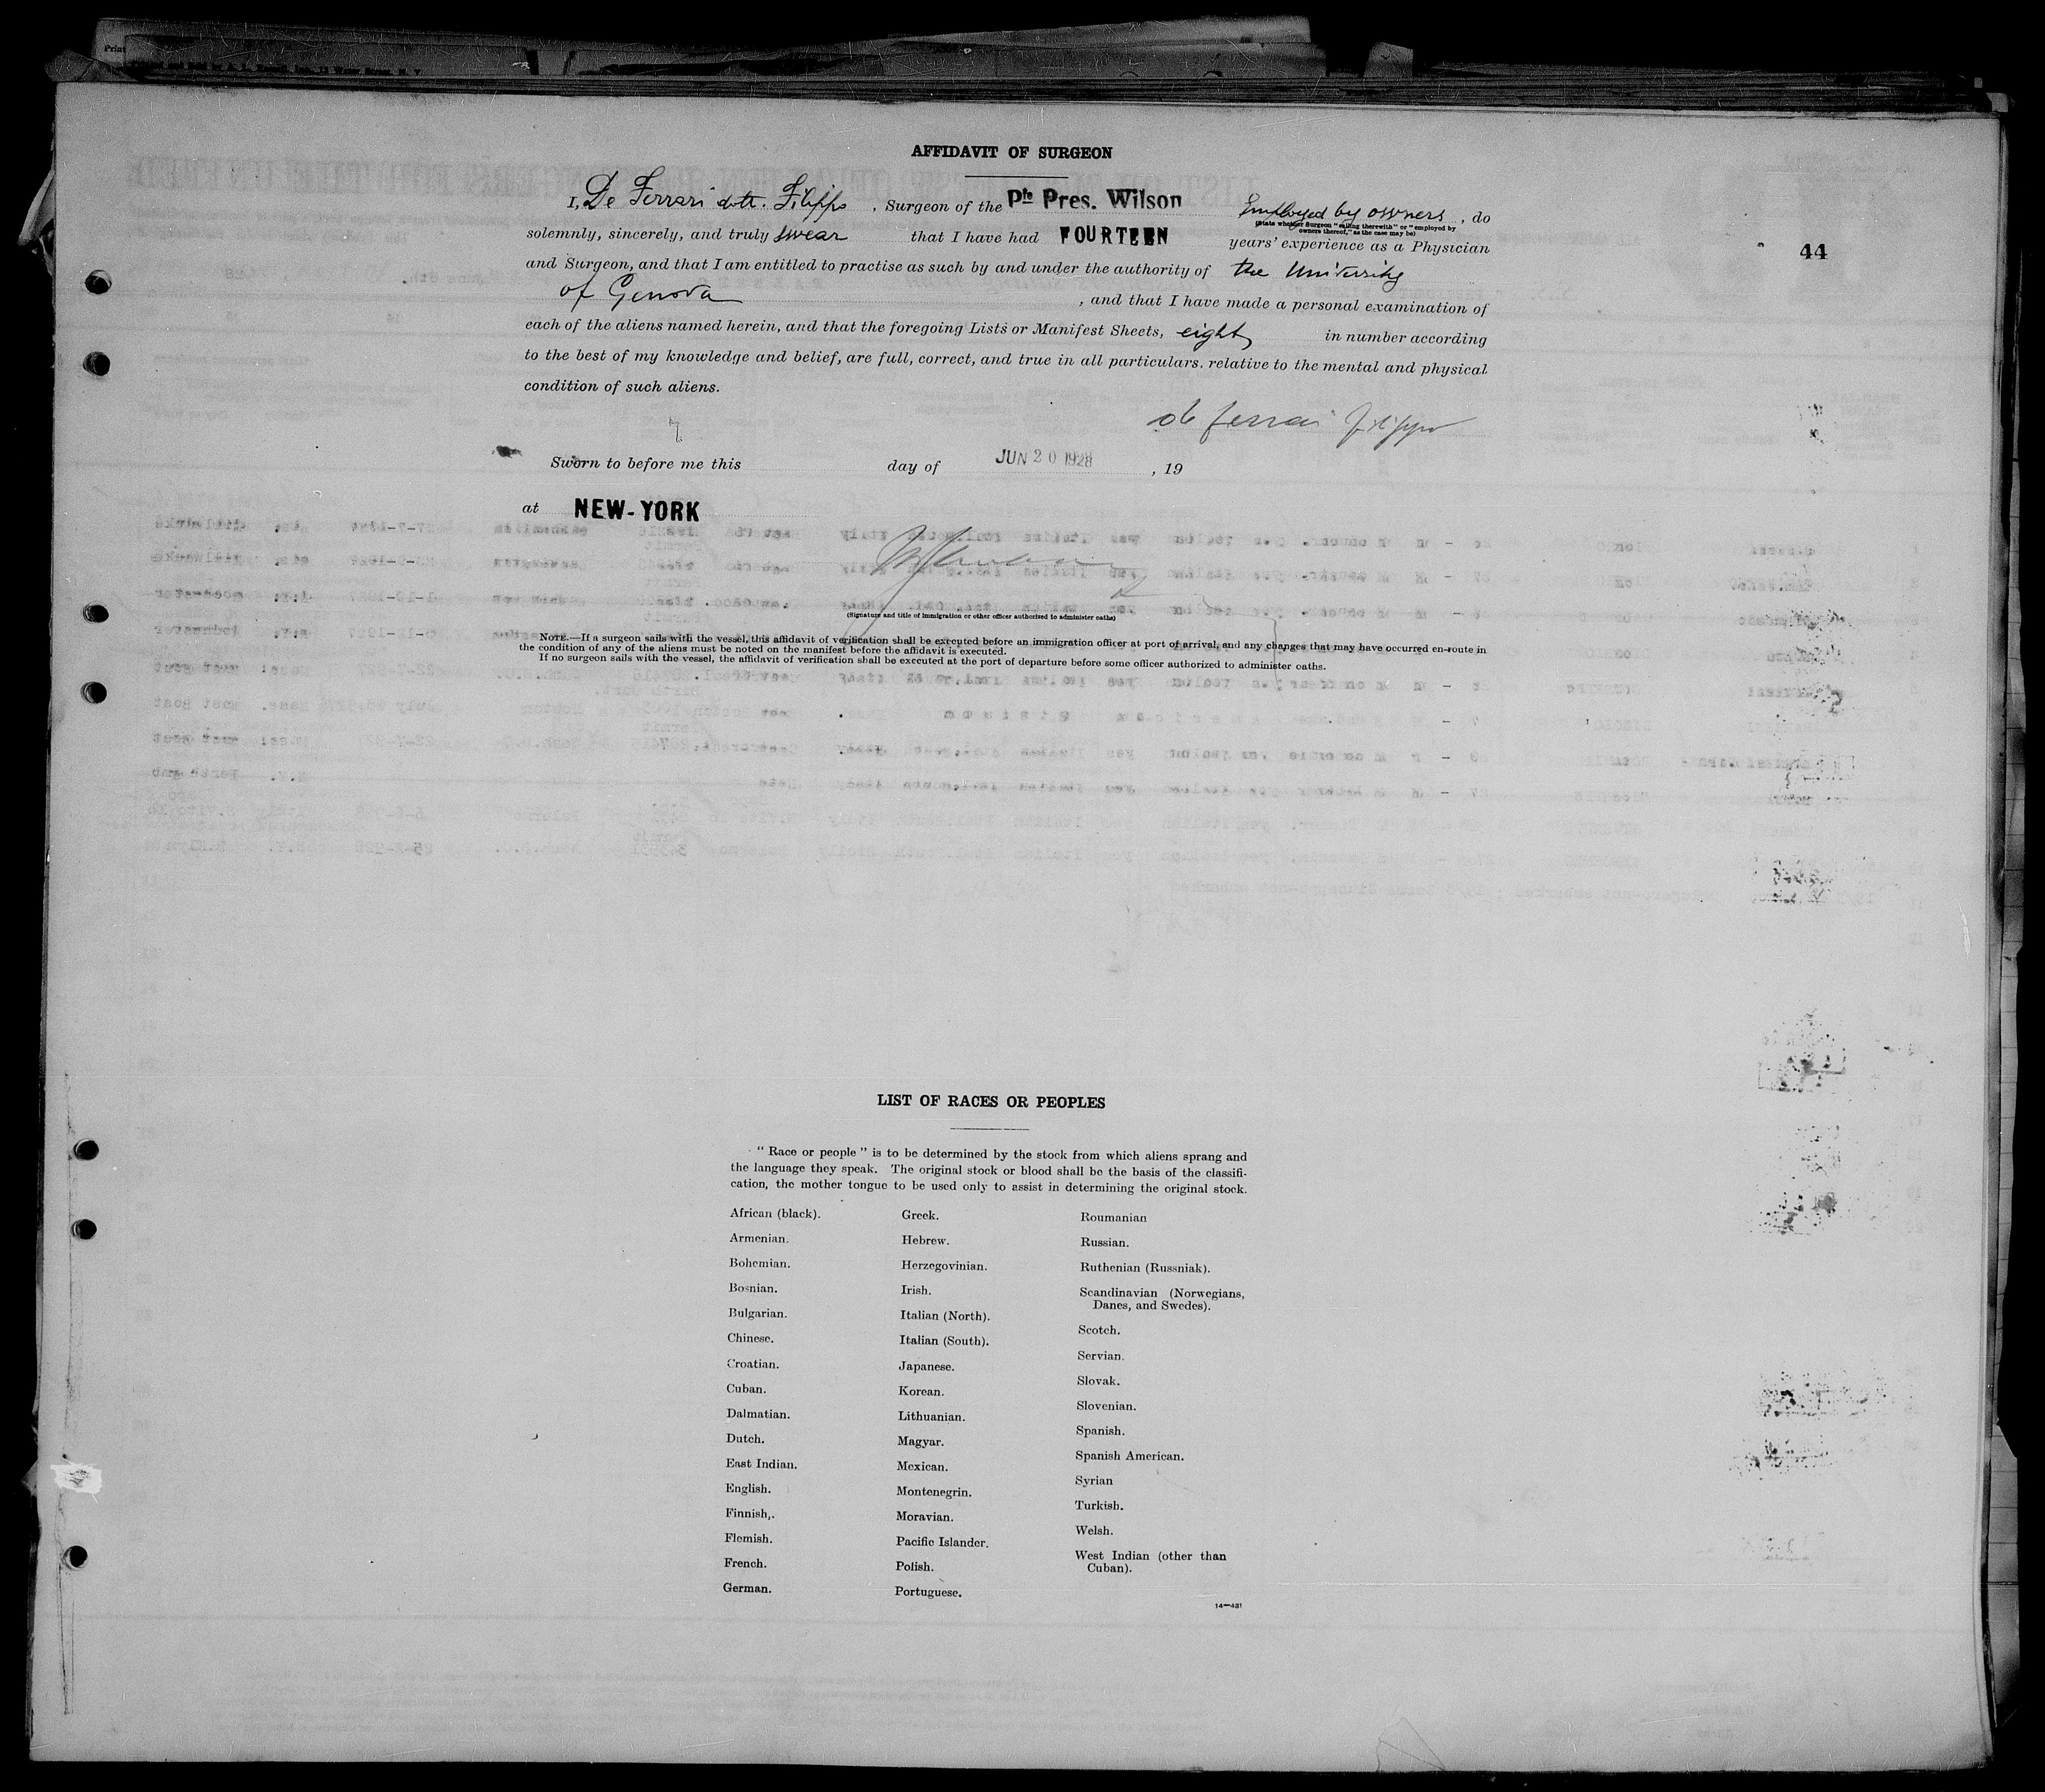 AFFIDAVIT OF SURGEON
I, De Ferrari dott. Filippo, Surgeon of the Pte Pres. Wilson Employed by owners, do
(State whether Surgeon "sailing therewith" or "employed by
owners thereof," as the case may be)
44
solemnly, sincerely, and truly swear that I have had FOURTEEN years' experience as a Physician
and Surgeon, and that I am entitled to practise as such by and under the authority of the University
of Genova, and that I have made a personal examination of
each of the aliens named herein, and that the foregoing Lists or Manifest Sheets, eight in number according
to the best of my knowledge and belief, are full, correct, and true in all particulars. relative to the mental and physical
condition of such aliens.
de Ferrari Filippo
Sworn to before me this day of JUN 20 1928, 19
at NEW-YORK
(Signature and title of immigration or other officer authorized to administer oaths)
NOTE.—If a surgeon sails with the vessel, this affidavit of verification shall be executed before an immigration officer at port of arrival, and any changes that may have occurred en-route in
the condition of any of the aliens must be noted on the manifest before the affidavit is executed.
If no surgeon sails with the vessel, the affidavit of verification shall be executed at the port of departure before some officer authorized to administer oaths.
LIST OF RACES OR PEOPLES
"Race or people" is to be determined by the stock from which aliens sprang and
the language they speak. The original stock or blood shall be the basis of the classifi-
cation, the mother tongue to be used only to assist in determining the original stock.
African (black).
Armenian.
Bohemian.
Bosnian.
Bulgarian.
Chinese.
Croatian.
Cuban.
Dalmatian.
Dutch.
East Indian.
English.
Finnish,.
Flemish.
French.
German.
Greek.
Hebrew.
Herzegovinian.
Irish.
Italian (North).
Italian (South).
Japanese.
Korean.
Lithuanian.
Magyar.
Mexican.
Montenegrin.
Moravian.
Pacific Islander.
Polish.
Portuguese.
Roumanian
Russian.
Ruthenian (Russniak).
Scandinavian (Norwegians,
Danes, and Swedes).
Scotch.
Servian.
Slovak.
Slovenian.
Spanish.
Spanish American.
Syrian
Turkish.
Welsh.
West Indian (other than
Cuban).
14—431